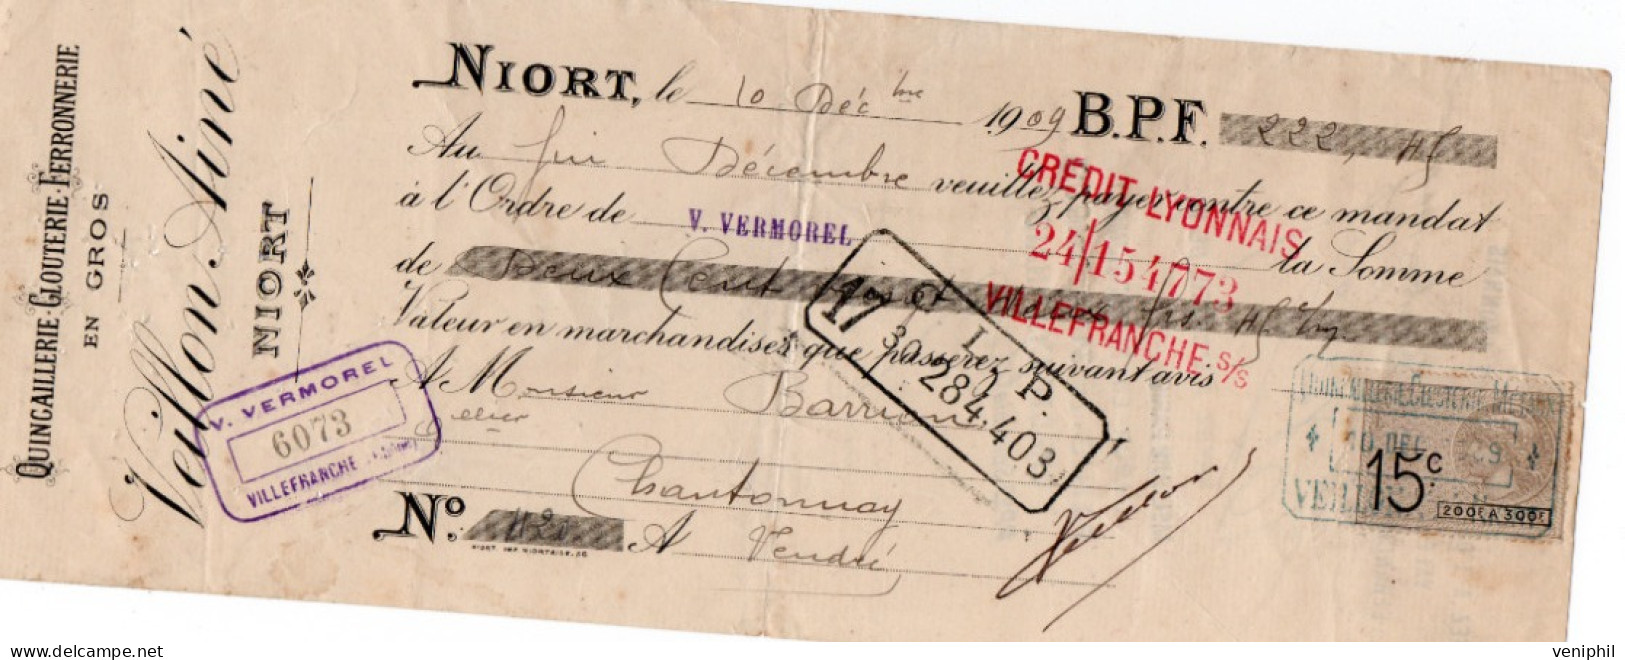 QUINCAILLERIE·CLOUTERIE·FERRONNERIE
EN GROS
Veillon Aîné
NIORT
NIORT, le 10 Déc bre 1909 B.P.F. 222,45
Au fin Décembre veuillez payer contre ce mandat
à l'Ordre de V. VERMOREL la Somme
de Deux Cent vingt deux frs 45 c/m
Valeur en marchandises que passerez suivant avis
A Monsieur Barrion
Sellier
Chantonnay
No. 420 A Vendée
NIORT. IMP. NIORTAISE.
V. VERMOREL
6073
VILLEFRANCHE (Rhône)
CRÉDIT LYONNAIS
24/154773
VILLEFRANCHE S/S
17 C. L. P.
30 9
284.403
Veillon
10 DEC 09
VEILLON
15c
200F A 300F
veniphil